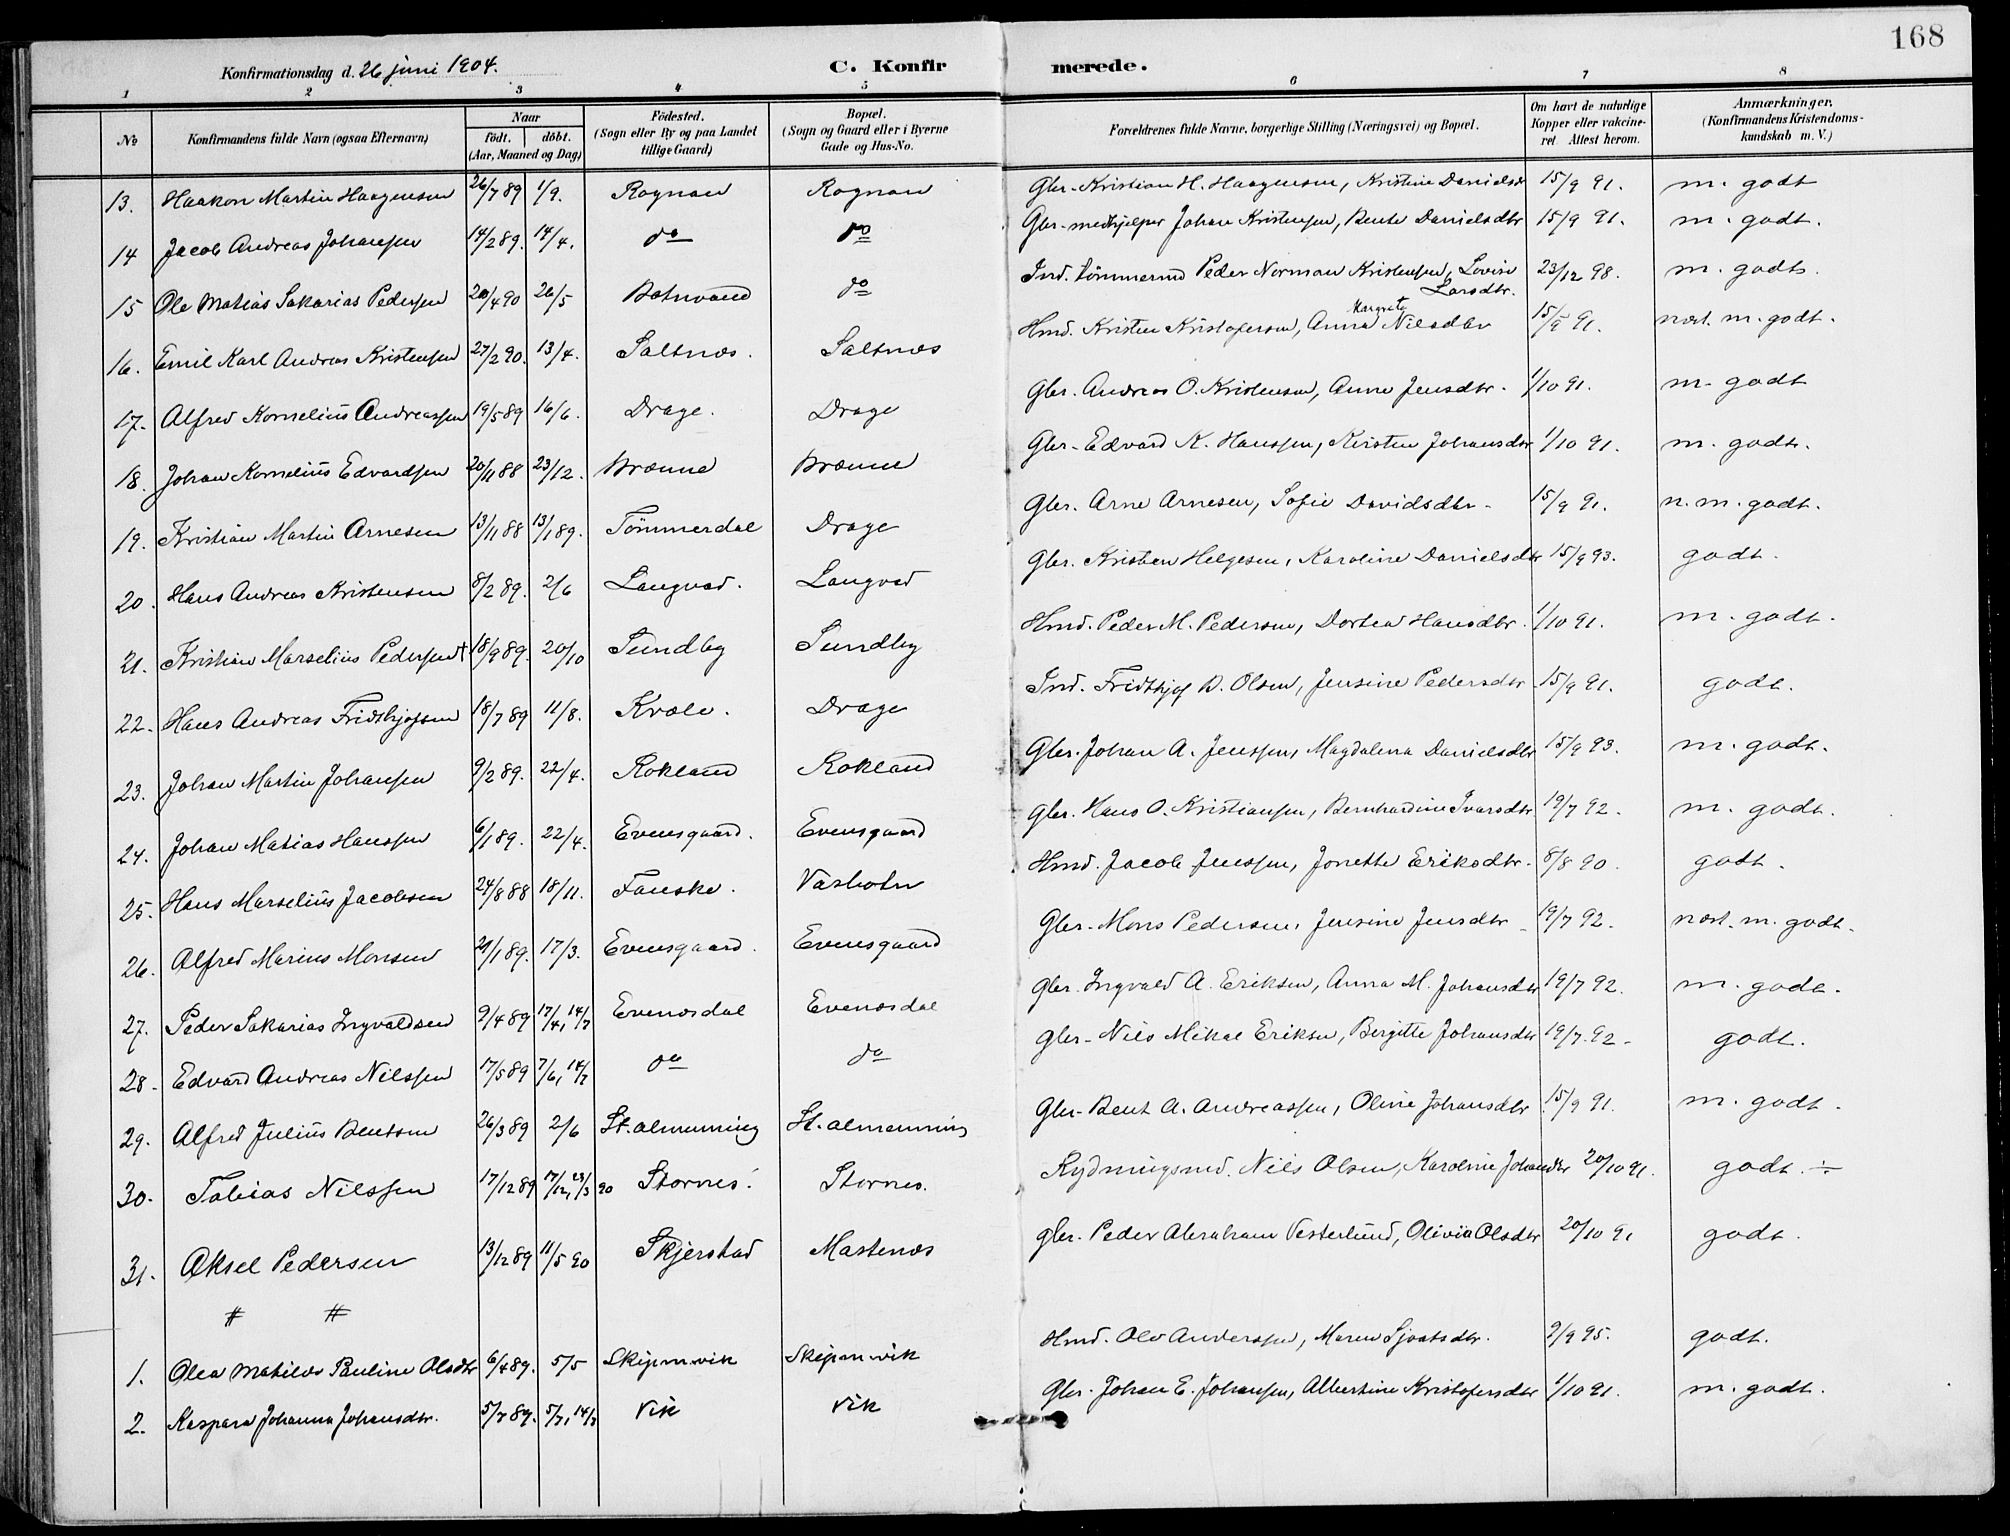 168
Konfirmationsdag d. 26 juni 1904. C. Konfirmerede.
1 2 3 4 5 6 7 8
No Konfirmandens fulde Navn (ogsaa Efternavn) Naar født. døbt. (Aar, Maaned og Dag) Fødested. (Sogn eller By og paa Landet tillige Gaard) Bopæl. (Sogn og Gaard eller i Byerne Gade og Hus-No. Forældrenes fulde Navne, borgerlige Stilling (Næringsvei) og Bopæl. Om havt de naturlige Kopper eller vakcineret Attest herom. Anmærkninger, (Konfirmandens Kristendomskundskab m. V.)
13. Haakon Martin Haagensen 26/7 89 1/9. Rognan Rognan Gbr. Kristian H. Haagensen, Kristine Danielsdr 15/9 91. m. godt
14 Jacob Andreas Johansen 14/2 89. 14/4. do do Gbr-medhjelper Johan Kristensen, Bente Danielsdtr 15/9 91. m. godt.
15 Ole Matias Sakarias Pedersen 20/4 90 26/5 Botnvand do Ind. tømmermd Peder Norman Kristensen, Lovise Larsdtr. 23/12 98. m. godt.
16. Emil Karl Andreas Kristensen 27/2 90. 13/4. Saltnæs. Saltnæs Hmd. Kristen Kristofersen, Anna Margrete Nilsdtr 15/9 91. næst. m. godt.
17. Alfred Kornelius Andreassen 19/5 89 16/6. Drage. Drage Gbr. Andreas O. Kristensen, Anne Jensdtr. 1/10 91. m. godt
18. Johan Kornelius Edvardsen 20/11 88 23/12. Brænne Brænne Gbr. Edvard K. Hanssen, Kirsten Johansdtr 1/10 91. m. godt.
19. Kristian Martin Arnesen 13/11 88 13/1 89. Tømmerdal Drage Gbr. Arne Arnesen, Sofie Davidsdtr. 15/9 91. n. m. godt.
20. Hans Andreas Kristensen 8/2 89. 2/6 Langvad. Langvad Gbr. Kristen Helgesen, Karoline Danielsdtr 15/9 93. godt.
21. Kristian Marselius Pedersen+ 18/9 89. 20/10 Sundby Sundby Hmd. Peder M. Pedersen, Dortea Hansdtr. 1/10 91. m. godt.
22. Hans Andreas Fridthjofsen 18/7 89 11/8. Kvæle. Drage Ind. Fridthjof D. Olsen, Jensine Pedersdtr 15/9 91. godt.
23. Johan Martin Johansen 9/2 89. 22/4. Rokland Rokland Gbr. Johan A. Jenssen, Magdalena Danielsdtr 15/9 93. m. godt.
24. Johan Matias Hanssen 6/1 89. 22/4. Evensgaard. Evensgaard Gbr. Hans O. Kristiansen, Bernhardine Ivarsdtr 19/7 92. m. godt.
25. Hans Marselius Jacobsen 24/8 88 18/11. Fauske. Vasbotn Hmd. Jacob Jenssen, Jonette Eriksdtr. 8/8 90. godt.
26. Alfred Marius Monsen 29/1 89. 17/3. Evensgaard. Evensgaard Gbr. Mons Pedersen, Jensine Jensdtr 19/7 92. næst. m. godt.
27. Peder Sakarias Ingvaldsen 9/4 89 17/4, 14/7 Evenesdal Evenesdal Gbr. Ingvald A. Eriksen, Anna M. Johansdtr 19/7 92. m. godt.
28. Edvard Andreas Nilssen 17/5 89 7/6, 14/7 do do Gbr. Nils Mikal Eriksen, Birgitte Johansdtr 19/7 92. godt.
29. Alfred Julius Bentsen 26/3 89 2/6 St. almenning St. almenning Gbr. Bent A. Andreassen, Oline Johansdtr 15/9 91. m. godt.
30. Tobias Nilssen 17/12 89 17/12, 23/3 90 Stornes. Stornes. Rydningsmd. Nils Olsen, Karoline Johansdtr 20/10 91. godt. ÷
31. Aksel Pedersen 13/12 89 11/5 90 Skjerstad Mastenæs gbr. Peder Abraham Vesterlund, Olivia Olsdtr 20/10 91 godt.
# #
1. Olea Matilde Pauline Olsdtr 6/4 89. 5/5 Skipmvik Skipmvik Hmd. Ole Anderssen, Maren Sjvatsdtr. 9/9 95. godt.
2. Kaspara Johanna Johansdtr. 5/7 89. 5/7, 14/7 Vik Vik Gbr. Johan E. Johansen, Albertine Kristofersdtr 1/10 91. m. godt.